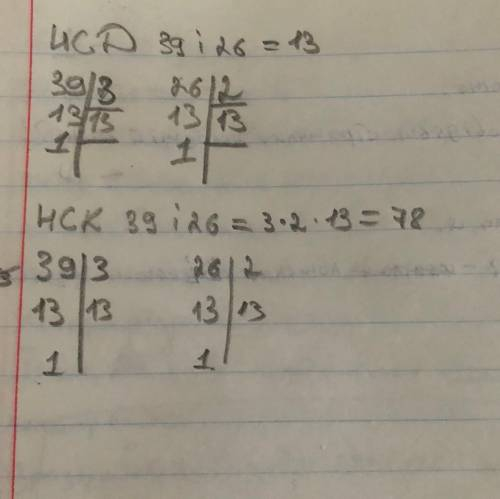 НСД 39 і 26 = 13
39 | 3 26 | 2
13 | 13 13 | 13
1 | 1 |
НСК 39 і 26 = 3 · 2 · 13 = 78
39 | 3 26 | 2
13 | 13 13 | 13
1 | 1 |